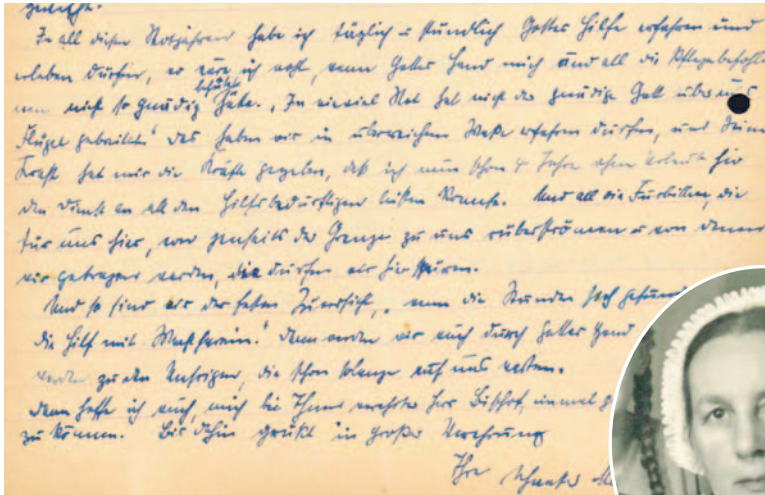 In all diesen Notjahren habe ich täglich u. stündlich Gottes Hilfe erfahren und
erleben dürfen, wo wäre ich wohl, wenn Gottes Hand mich und all die Pflegebefohle
nen nicht so gnädig beschützt hätte. „In wieviel Not hat nicht der gnädige Gott über uns
Flügel gebreitet" das haben wir in überreichem Maße erfahren dürfen, und Seine
Kraft hat mir die Kräfte gegeben, daß ich nun schon 4 Jahre ohne Urlaub hier
den Dienst an all den Hilfsbedürftigen leisten konnte. Und all die Fürbitten, die
für uns hier, von jenseits der Grenze zu uns rüberströmen u. von denen
wir getragen werden, die dürfen wir hier spüren.
Und so sind wir der festen Zuversicht, „wenn die Stunden sich gefund
die Hilf mit Macht herein." Dann werden wir auch durch Gottes Hand
werden zu den Unsrigen, die schon solange auf uns warten.
Dann hoffe ich auch, mich bei Ihnen verehrter Herr Bischof, einmal
zu können. Bis dahin grüßt in großer Verehrung
Ihre Schwester